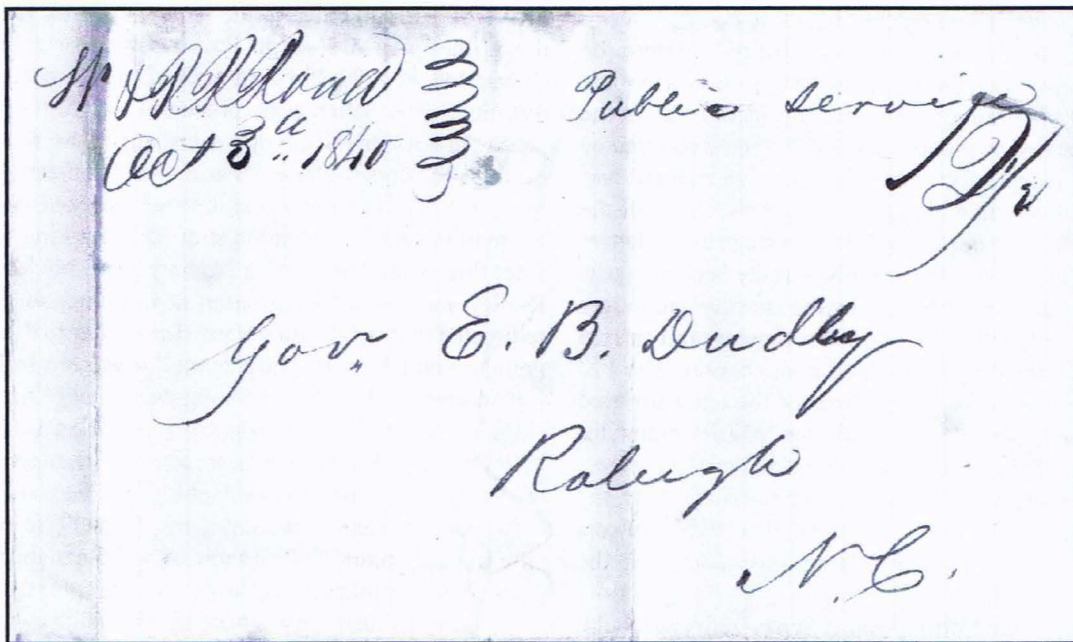 W & R R Road
Oct 3d 1840
Public service
Gov. E. B. Dudley
Raleigh
N.C.